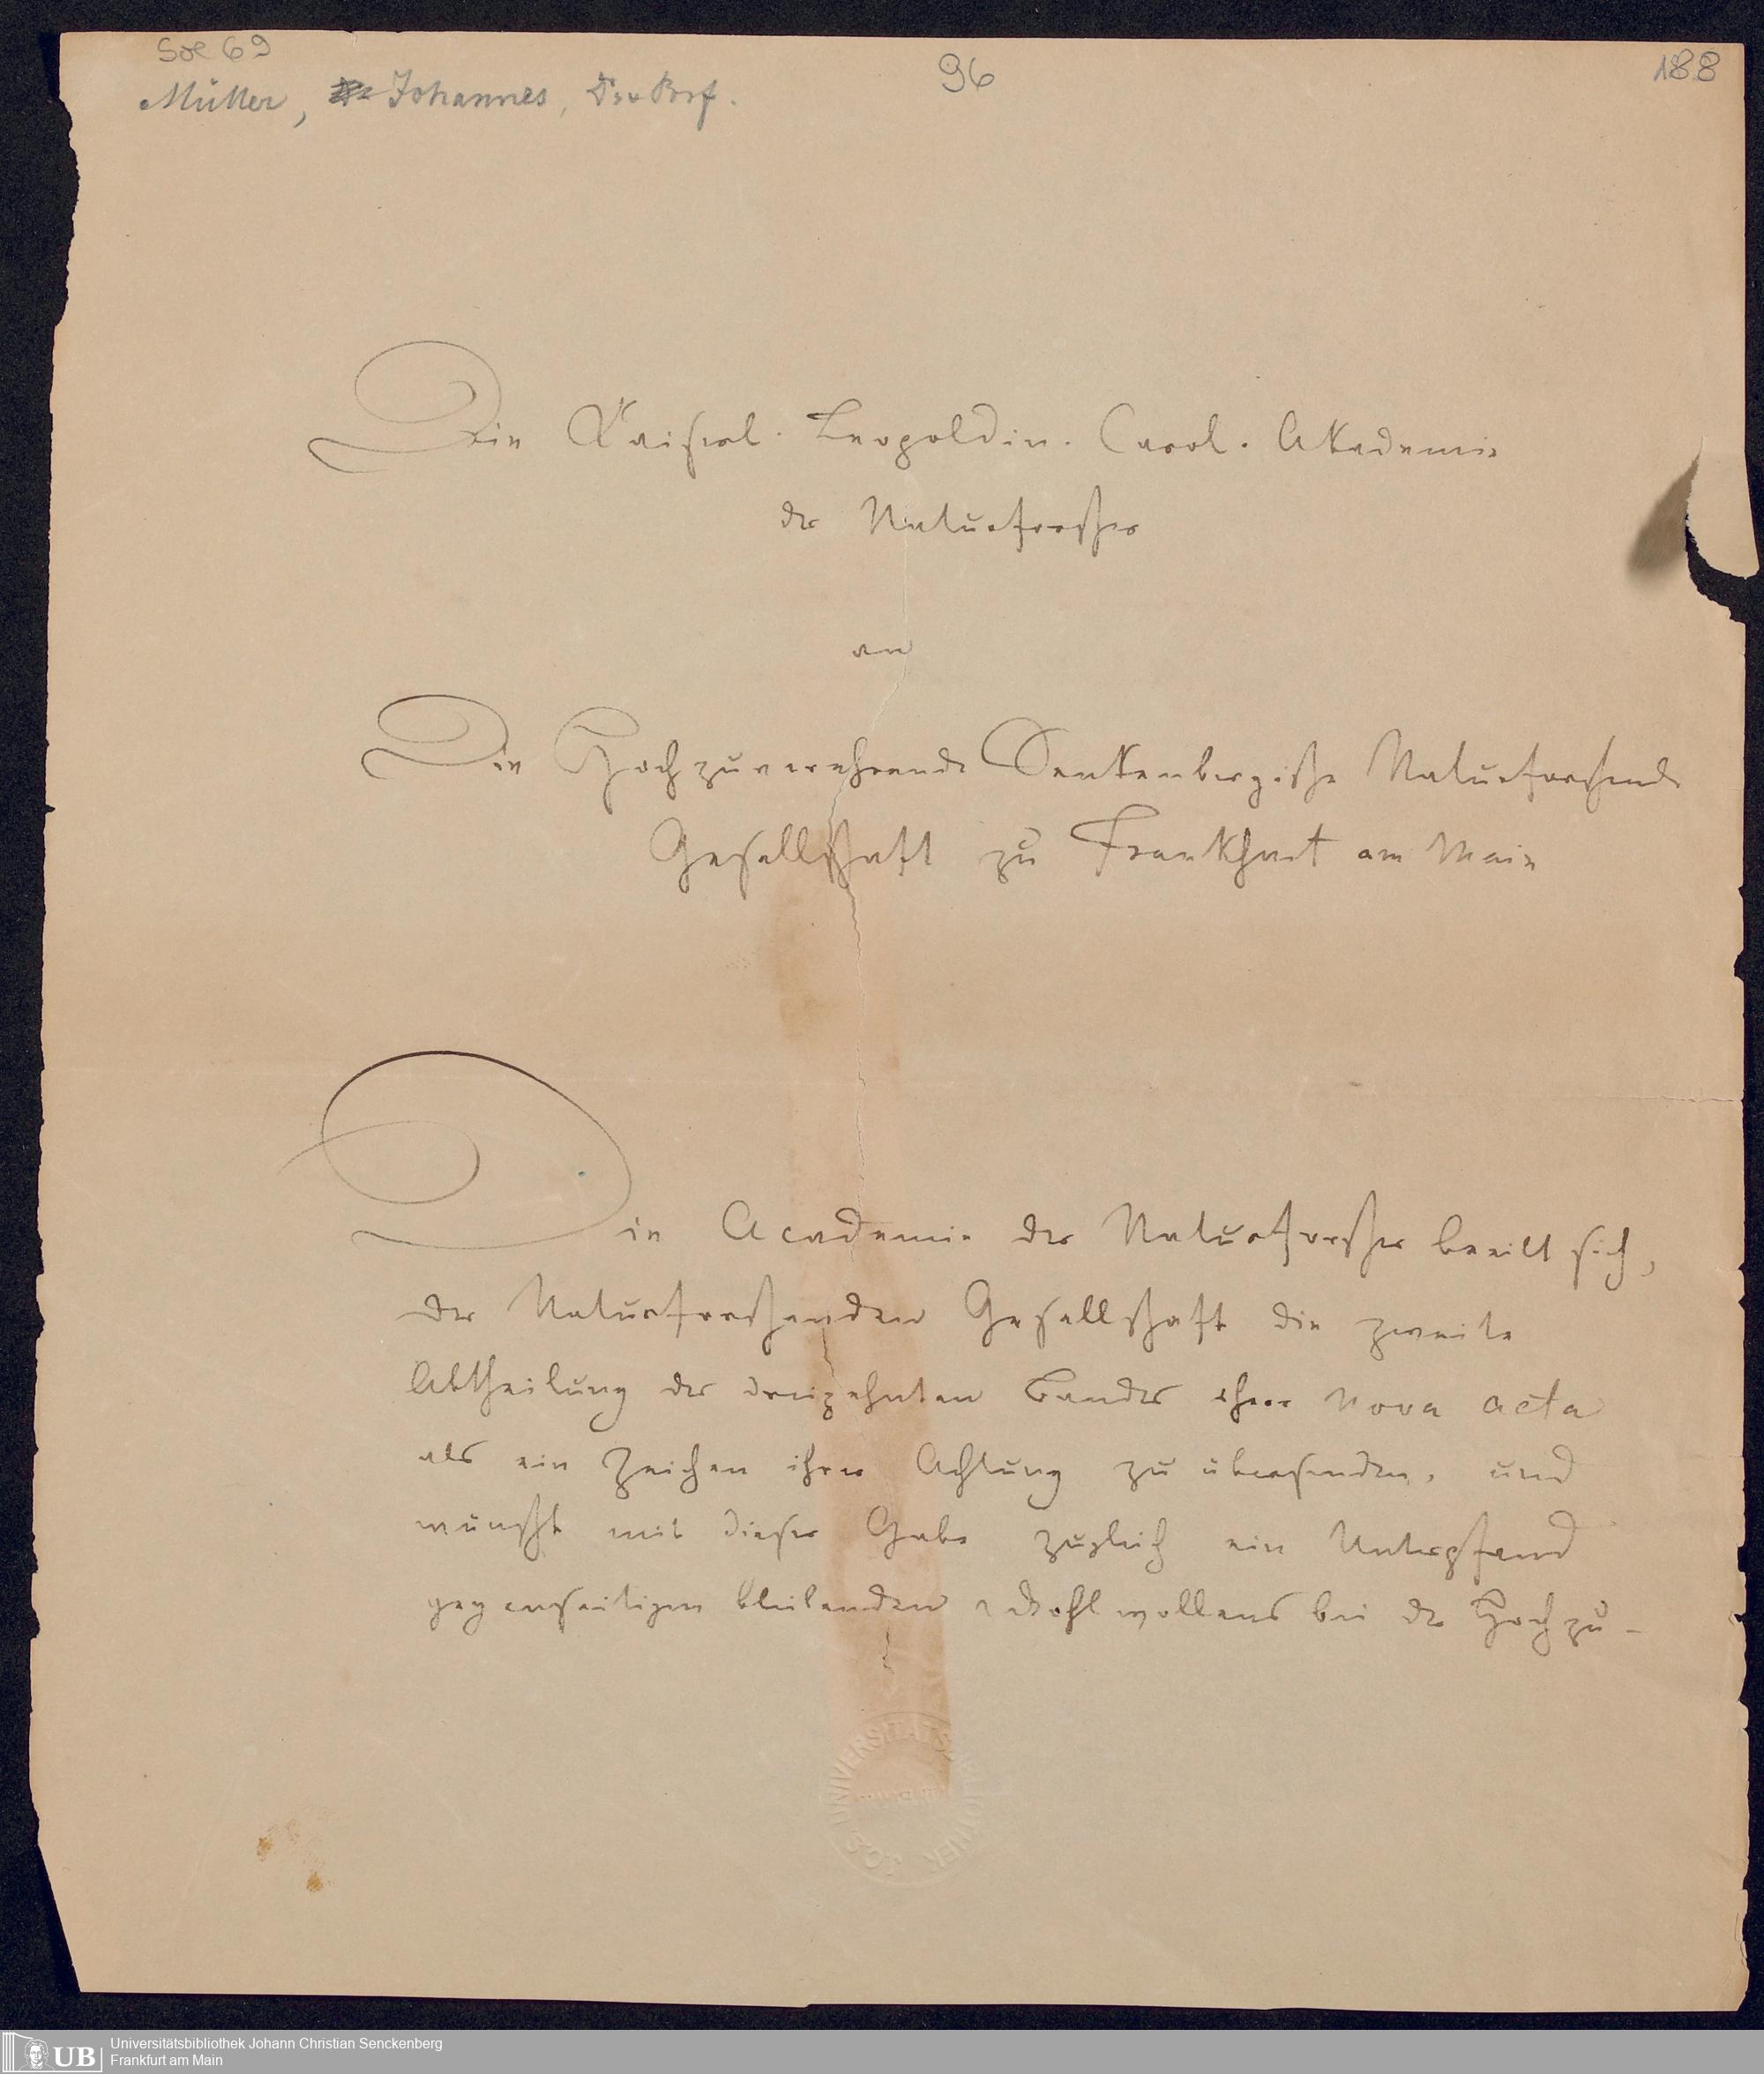 Soe 69
Müller, Johannes, Dr. Prof.
96
188
Die Kaiserl. Leopoldin. Carol. Akademie
der Naturforscher
an
Die Hochzuverehrende Senkenbergische Naturforschende
Gesellschaft zu Frankfurt am Main
Die Academie der Naturforscher beeilt sich,
der Naturforschenden Gesellschaft die zweite
Abtheilung des dreizehnten Bandes ihrer Nova acta
als ein Zeichen ihrer Achtung zu übersenden, und
wünscht mit dieser Gabe zugleich ein Unterpfand
gegenseitigen bleibenden Wohlwollens bei der Hochzu-
UNIVERSITÄTS
Universitätsbibliothek Johann Christian Senckenberg
UB Frankfurt am Main